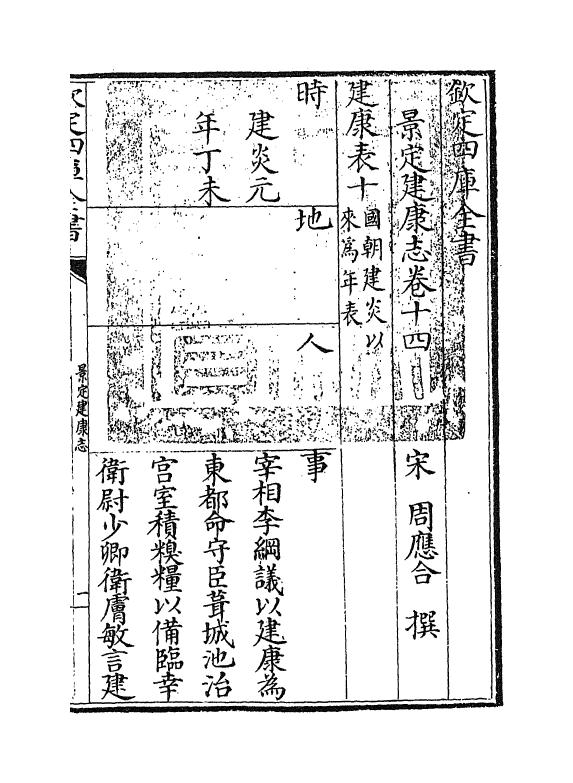 欽定四庫全書
景定建康志卷十四
宋 周應合 撰
建康表十
國朝建炎以
來為年表
時
地
人
事
建炎元
年丁未
宰相李綱議以建康為
東都命守臣葺城池治
宫室積糗糧以備臨幸
衛尉少卿衛膚敏言建
欽定四庫全書
景定建康志